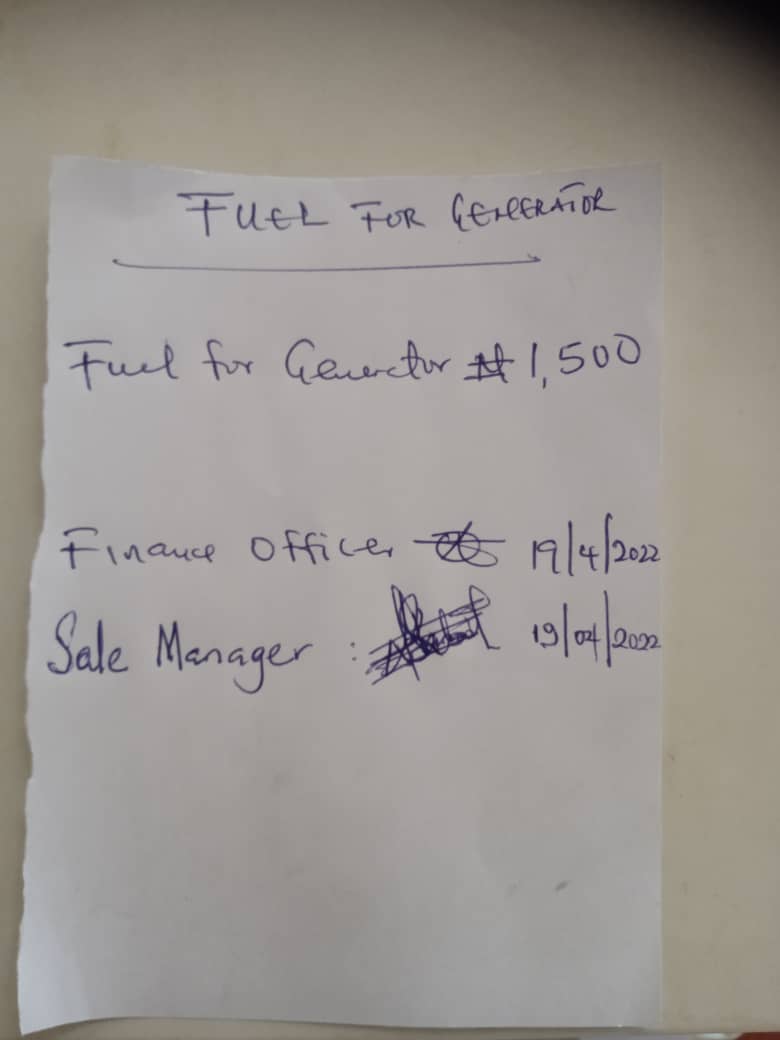 FUEL FOR GENERATOR
Fuel for Generator ₦1,500
Finance Officer 19/4/2022
Sale Manager : 19/04/2022